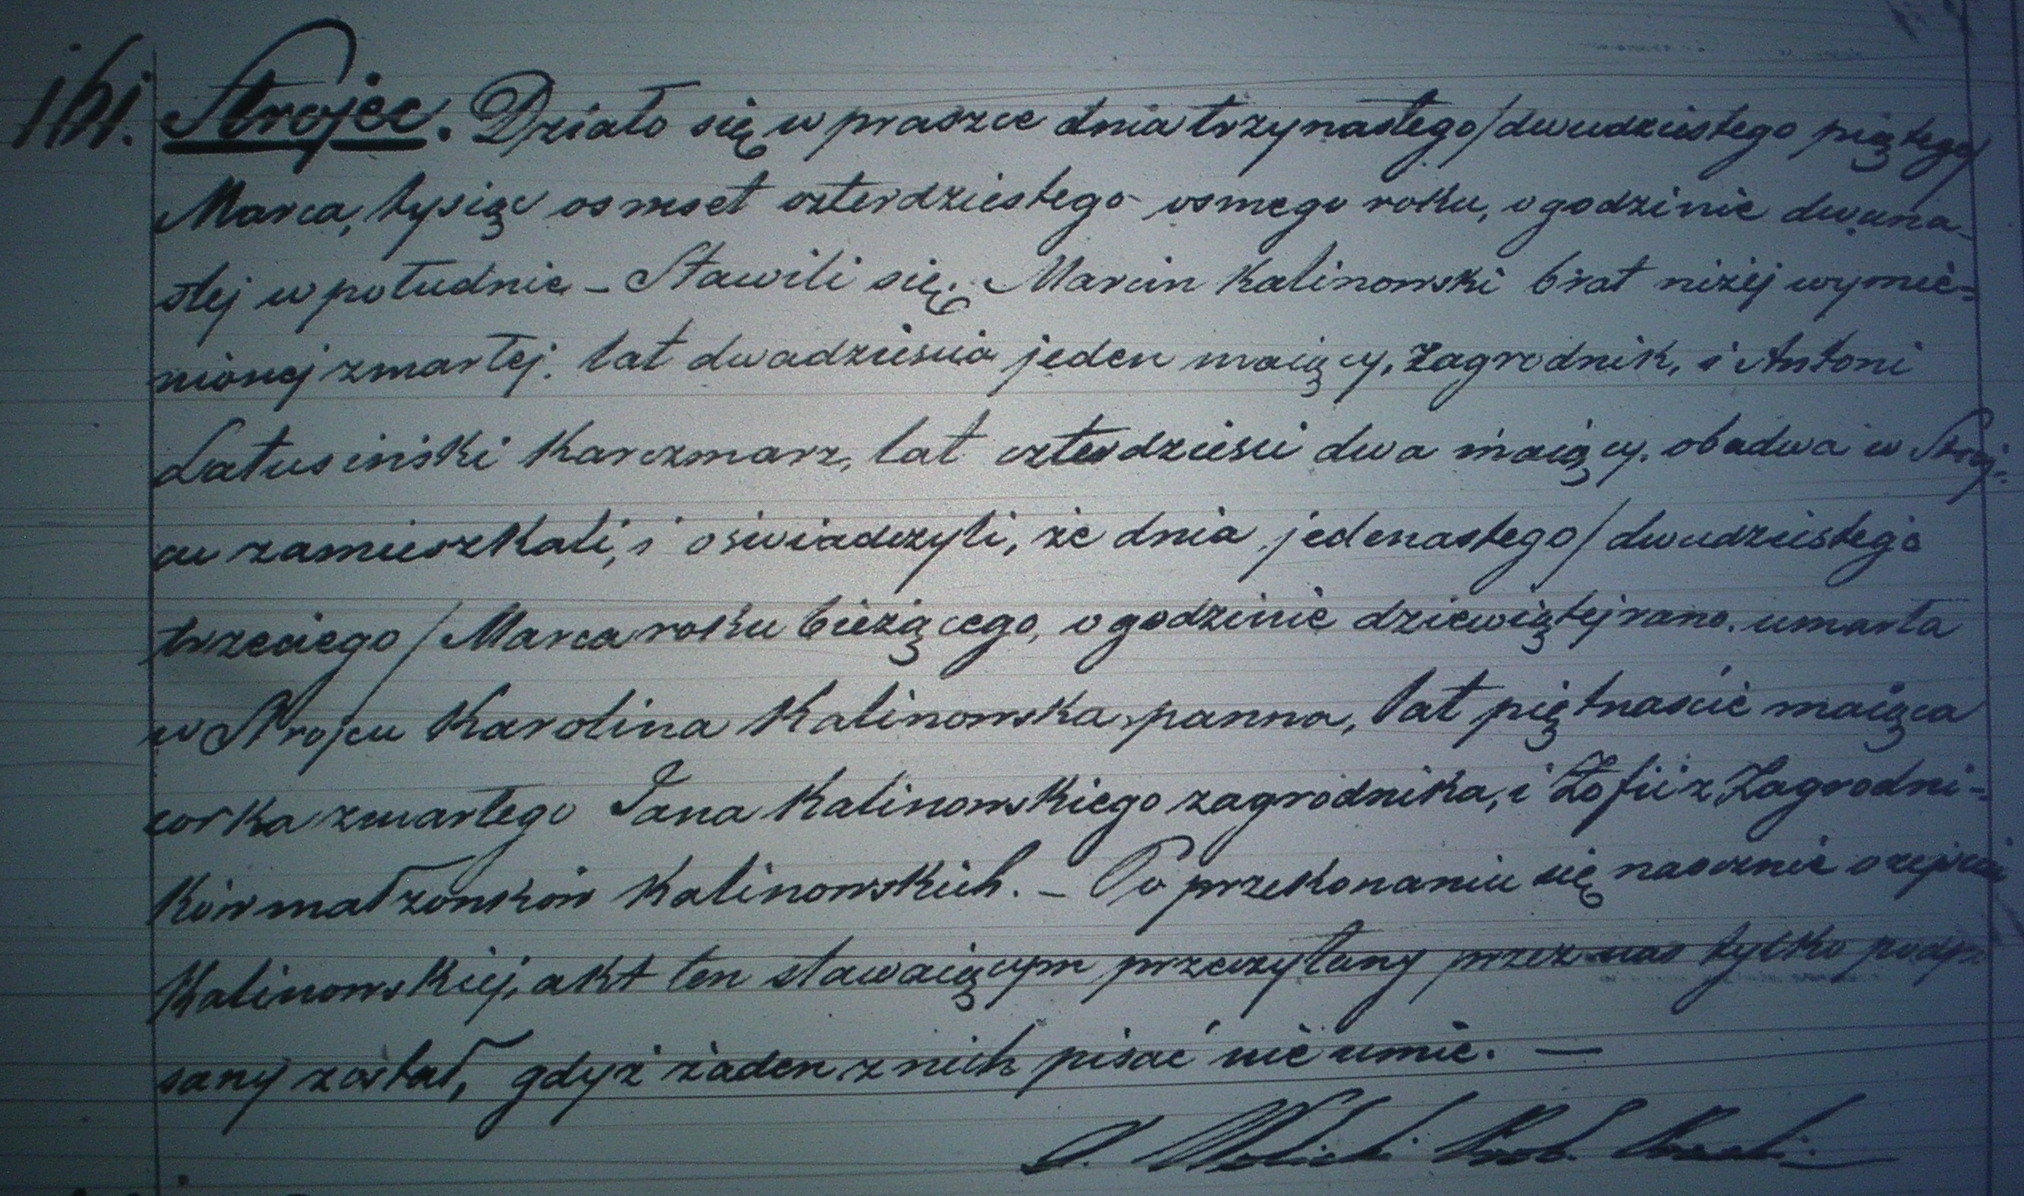 161. Strojec. Działo się w praszce dnia trzynastego/dwudziestego piątego/
Marca, tysiąc osmset czterdziestego osmego roku, o godzinie dwuna-
stej w południe – Stawili się, Marcin Kalinowski brat niżej wymie=
nionej zmarłej. lat dwadzieścia jeden maiący, Zagrodnik, i Antoni
Latusiński Karczmarz, lat czterdzieści dwa maiący. obadwa w Stroj-
cu zamieszkali, i oświadczyli, że dnia jedenastego/dwudziestego
trzeciego/Marca roku bieżącego, o godzinie dziewiątej rano. umarła
w Strojcu Karolina Kalinowska, panna, lat piętnaście maiąca
corka zmarłego Jana Kalinowskiego zagrodnika, i Zofii z Zagrodni-
ków małżonków Kalinowskich. – Po przekonaniu się naocznie o zejściu
Kalinowskiej, akt ten stawaiącym przeczytany przez nas tylko podpi
sany został, gdyż żaden z nich pisać nie umie. —